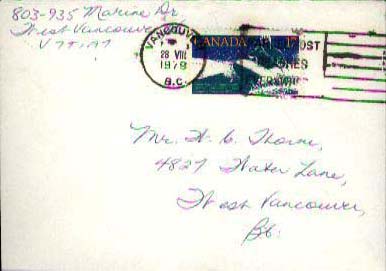 803-935 Marine Dr.
West Vancouver
V7T 1A7
VANCOUVER
28 VIII
1979
B.C.
CANADA
POST
Mr. W. C. Thorne,
4827 Water Lane,
West Vancouver,
BC.